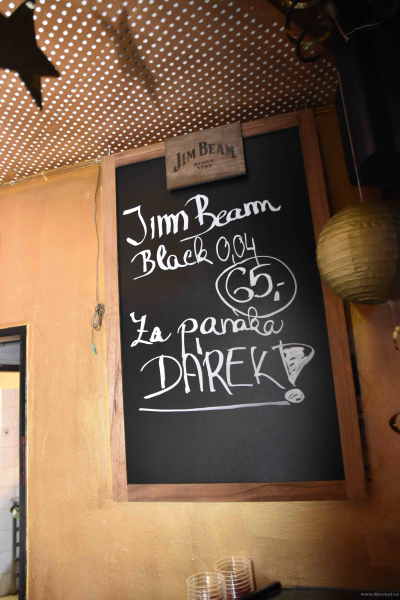 JIM BEAM
SINCE
1795
Jim Beam
Black 0,04
65,-
Za panáka
DÁREK!
www.djluckyd.cz